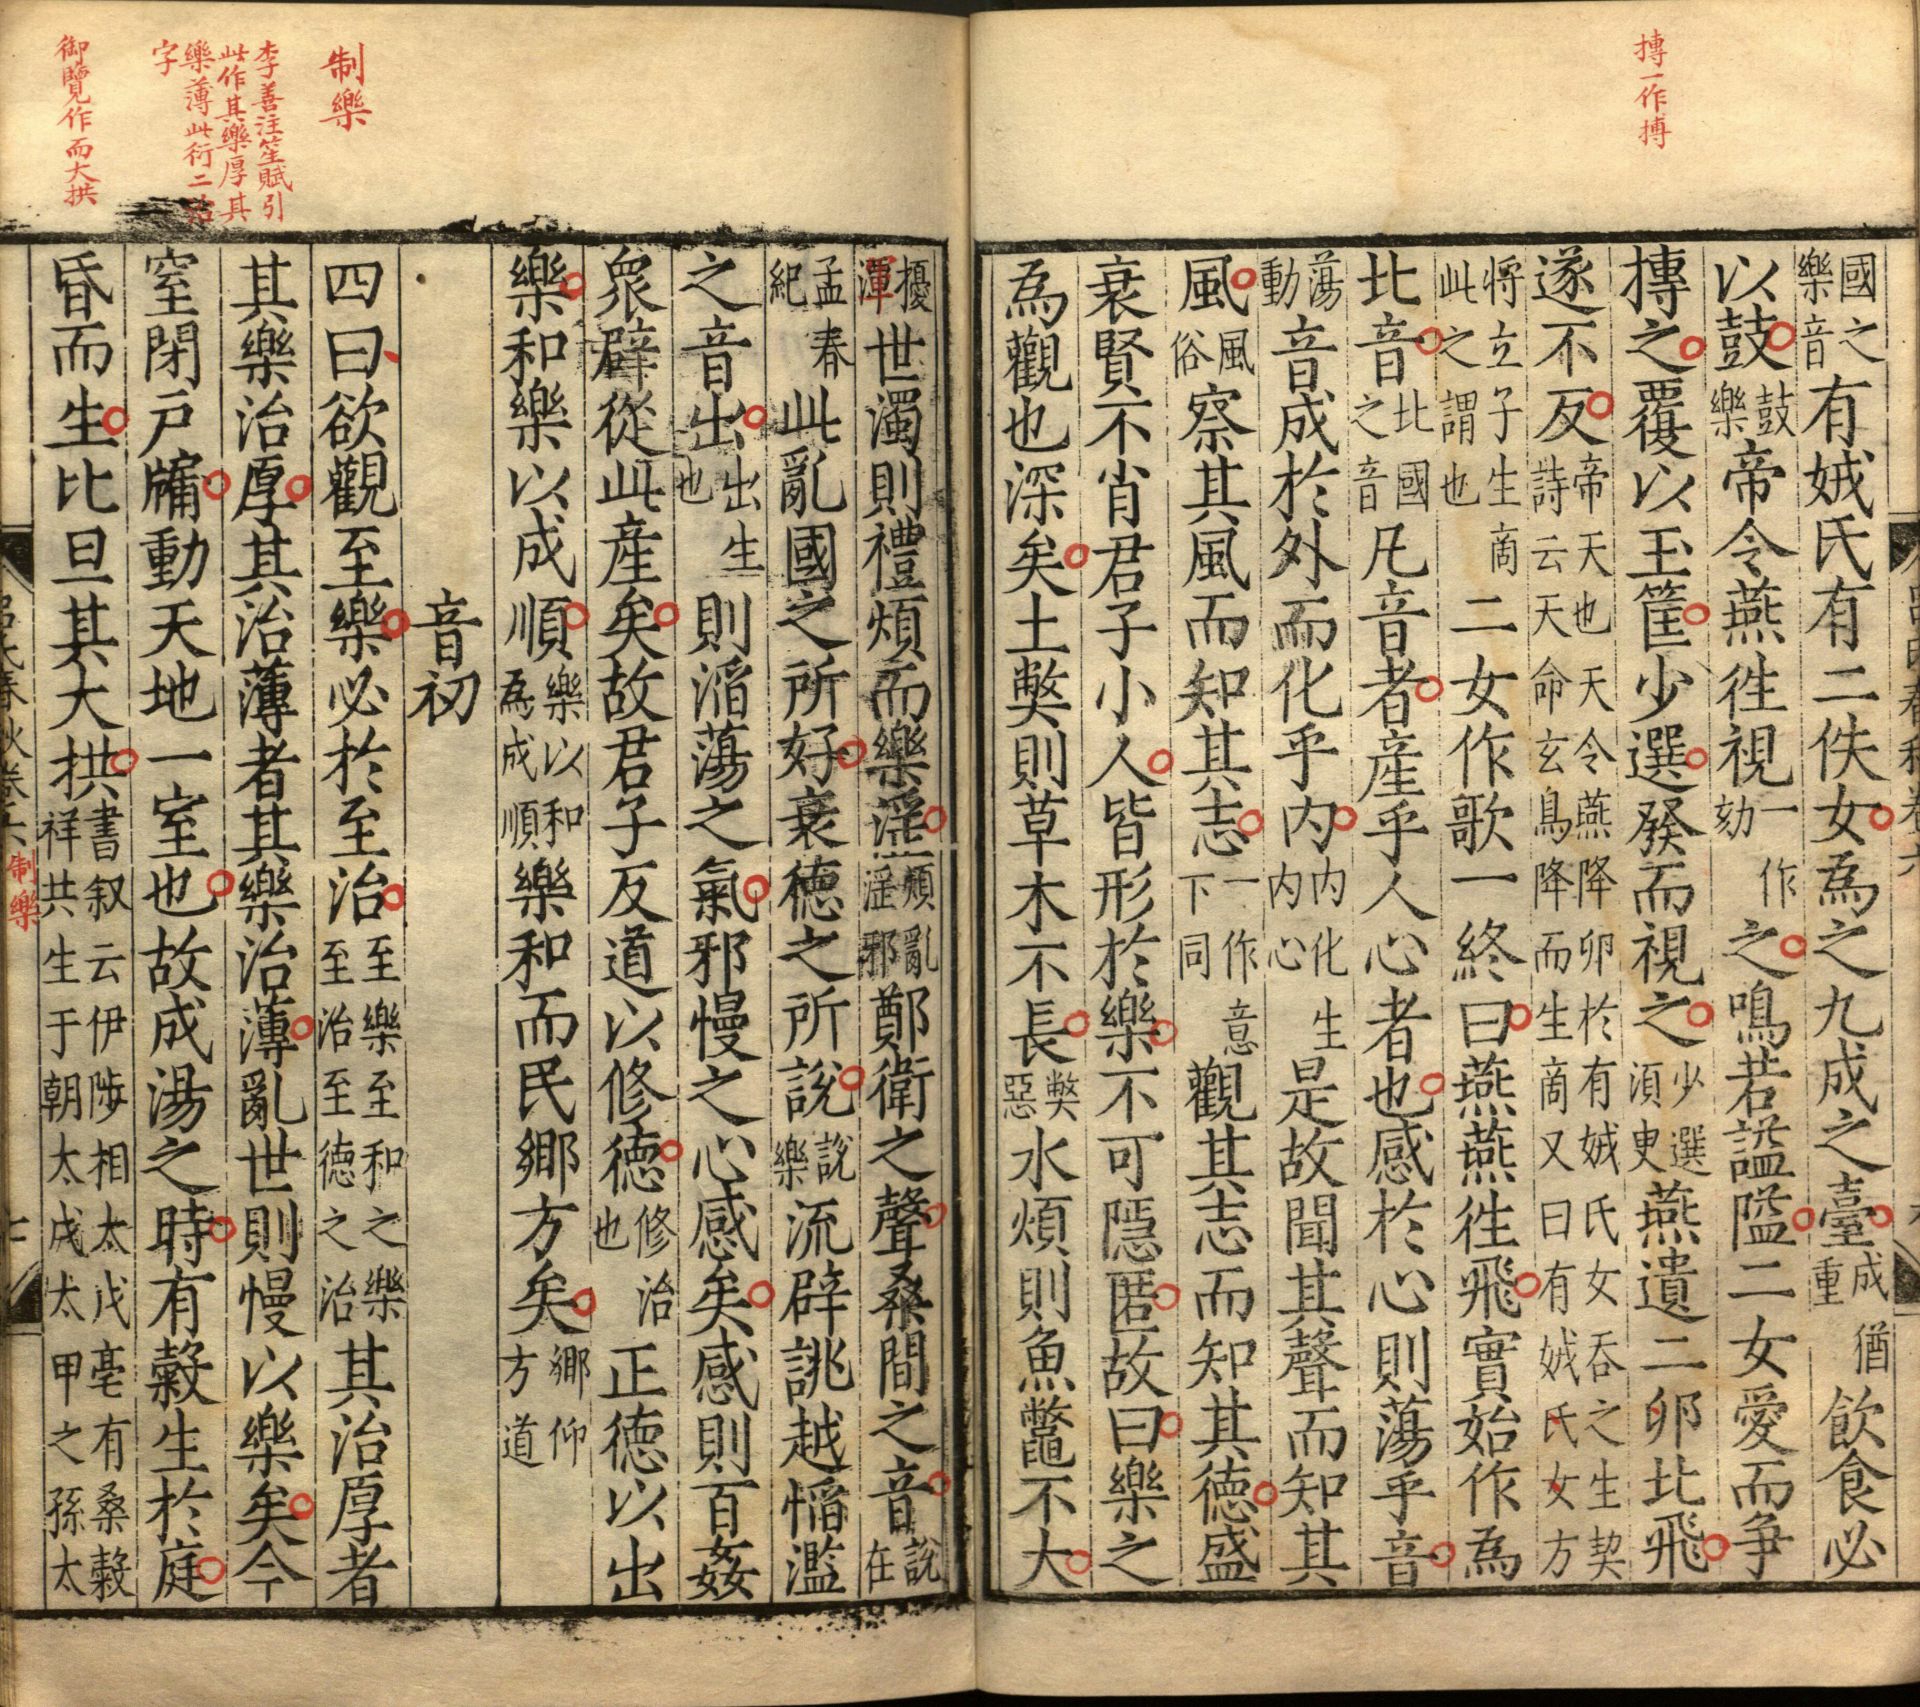 搏一作搏
國之樂音有娀氏有二佚女為之九成之臺成猶重飲食必
以鼓鼓樂帝令燕徃視一作劾之鳴若謚隘二女愛而争
摶之覆以玉筐少選發而視之少選須臾燕遺二卵北飛
遂不反帝天也天令燕降卵於有娀氏女吞之生契詩云天命玄鳥降而生商又曰有娀氏女方
將立子生商此之謂也二女作歌一終曰燕燕徃飛實始作為
北音北國之音凡音者產乎人心者也感於心則蕩乎音
蕩動音成於外而化乎内内化生内心是故聞其聲而知其
風風俗察其風而知其志一作意下同觀其志而知其德盛
衰賢不肖君子小人皆形於樂不可隱匿故曰樂之
為觀也深矣土獘則草木不長獘惡水煩則魚鼈不大
擾渾世濁則禮煩而樂淫煩亂淫邪鄭衛之聲桑間之音說在
孟春紀此亂國之所好衰德之所說說樂流辟誂越慆濫
之音出出生也則滔蕩之氣邪慢之心感矣感則百姦
衆辟從此産矣故君子反道以修德修治也正德以出
樂樂和樂以成順樂以和為成順樂和而民鄉方矣鄉仰方道
音初
四曰欲觀至樂必於至治至樂至和之樂至治至德之治其治厚者
其樂治厚其治薄者其樂治薄亂世則慢以樂矣今
窒閉戸牖動天地一室也故成湯之時有糓生於庭
昏而生比旦其大拱書叙云伊陟相太戊亳有桑糓祥共生于朝太戊太甲之孫太
制樂
李善注笙賦引
此作其樂厚其
樂薄此衍二治
字
御覽作而大拱
吕氏春秋卷六
制樂
七